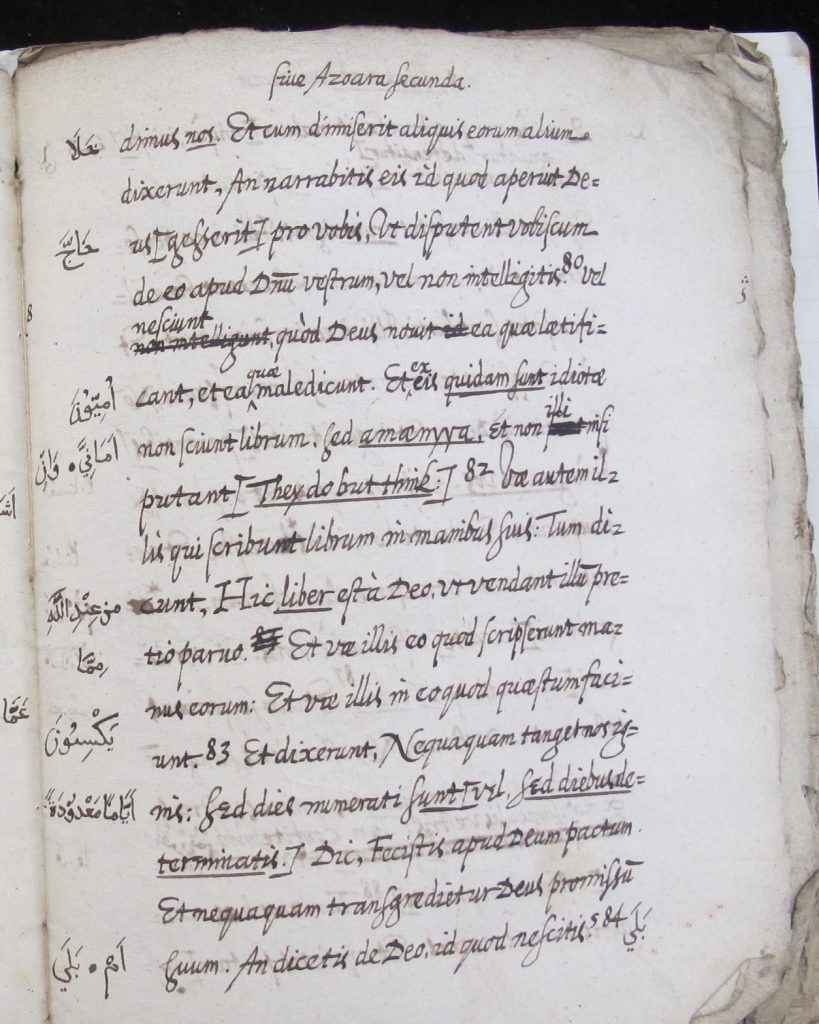 sive Azoara secunda.
خلا dimus nos. Et cum dimiserit aliquis eorum alium
dixerunt, An narrabitis eis id quod aperuit De=
حاجّ us [gesserit] pro vobis, Ut disputent vobiscum
de eo apud Dnū vestrum, vel non intelligitis? 80 vel
nesciunt
non intelligunt, quòd Deus novit id ea quæ lætifi=
cant, et ea quæ maledicunt. Et ex eis quidam sunt idiotæ
أمِيّونَ
8
non sciunt librum. sed amænyya. Et non illi nisi
اَمَانِيَّ • وَاِنْ
putant [They do but think:] 82 Væ autem il=
lis qui scribunt librum in manibus suis: Tum di=
من عِنْدِ اللّٰهِ cunt, Hic liber est à Deo, ut vendant illū pre=
مِمَّا tio parvo. Et væ illis eo quod scripserunt ma=
nus eorum: Et væ illis in eo quod quæstum faci=
عَمَّا
يَكْسِبُونَ unt. 83 Et dixerunt, Nequaquam tanget nos ig=
اَيَّامًا مَعْدُودَة nis: sed dies numerati sunt [vel, sed diebus de=
terminatis.] Dic, Fecistis apud Deum pactum.
Et nequaquam transgredietur Deus promissū
اَمْ • بَلَي suum. An dicetis de Deo, id quod nescitis? 84 بَلَي